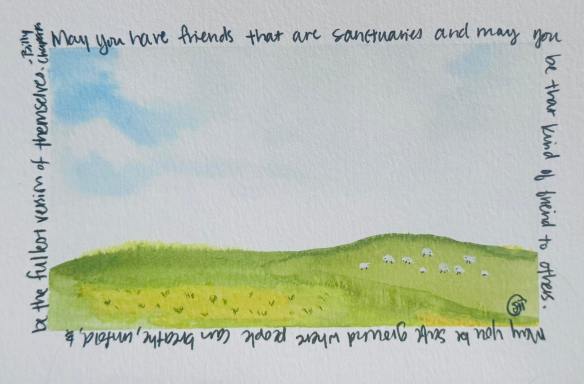 May you have friends that are sanctuaries and may you
be that kind of friend to others.
May you be safe ground where people can breathe, unfold, &
be the fullest version of themselves. - Billy
Chapata